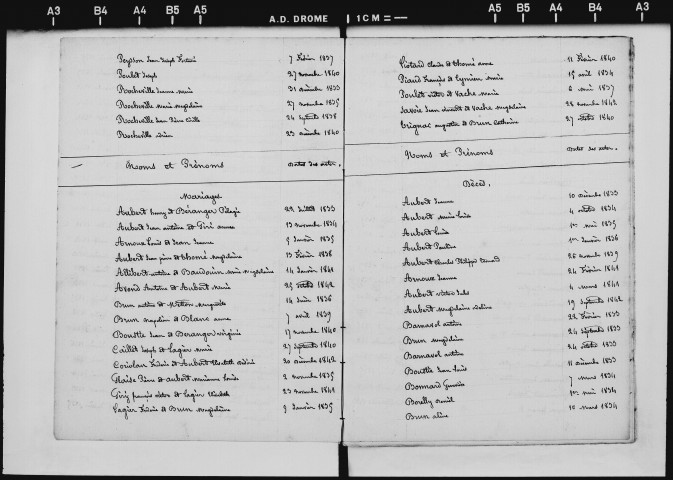 A3 B4 A4 B5 A5 A.D. DROME 1 CM = A5 B5 A4 B4 A3
Peysson Jean Joseph 7 février 1837
Poulet Joseph 27 novembre 1840
Rocheville Jeanne Marie 31 décembre 1833
Rocheville Marie Magdeleine 27 novembre 1835
Rocheville Jean Pierre 24 septembre 1838
Rocheville 23 décembre 1840
Noms et Prénoms Dates des actes.
Mariages.
Aubert henry et Béranger Pélagie 29 juillet 1833
Aubert Jean antoine et Giré anne 13 novembre 1834
Arnoux Louis et Jean Jeanne 5 janvier 1835
Aubert Jean pierre et thomé magdeleine 13 février 1838
Allibert antoine et Baudouin marie magdeleine 14 janvier 1841
Arond Antoine et Aubert marie 25 octobre 1842
Brun antoine et marguerite 14 juin 1836
Brun magdelin et Blanc anne 7 avril 1839
Bouttle Jean et Beranger virginie 17 novembre 1840
Caillet Joseph et Lagier marie 27 septembre 1840
Coriolan frédéric et Aubert Elisabeth 20 décembre 1842
Glaise Pierre et aubert marianne Louise 2 novembre 1835
Giry françois victor et Lagier Elisabeth 23 novembre 1841
Lagier frédéric et Brun magdeleine 9 janvier 1835
Liotard Claude et thomé anne 11 février 1840
Piaud François et Eymieu marie 15 avril 1834
Poulet victor et Vache marie 6 mai 1837
Savoie Jean et Vache magdeleine 28 novembre 1842
Trignac augustin et Brun Catherine 27 octobre 1840
Noms et Prénoms Dates des actes.
Décès.
Aubert Jeanne 10 décembre 1833
Aubert marie Louise 4 octobre 1834
Aubert Louis 1er mai 1835
Aubert Pauline 1er janvier 1836
Aubert Charles Philippe 26 novembre 1839
Arnoux Jeanne 24 février 1841
Aubert victor Jules 4 mars 1841
Aubert magdeleine 19 septembre 1842
Barnavol antoine 22 février 1833
Brun magdeleine 24 septembre 1833
Barnavol antoine 24 octobre 1833
Bouttle Jean Louis 11 décembre 1833
Bonnard 7 mars 1834
Borelly 1er mai 1834
Brun alexis 10 mars 1834